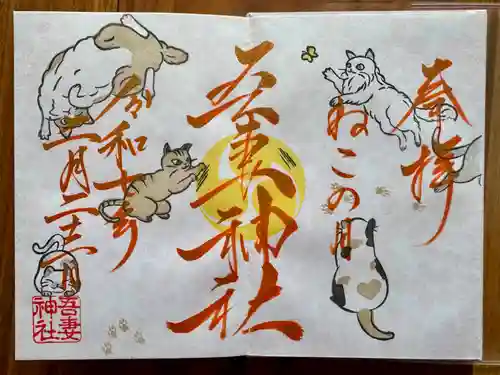 奉拝
ねこの月
吾妻神社
令和七年
二月二十二日
吾妻
神社